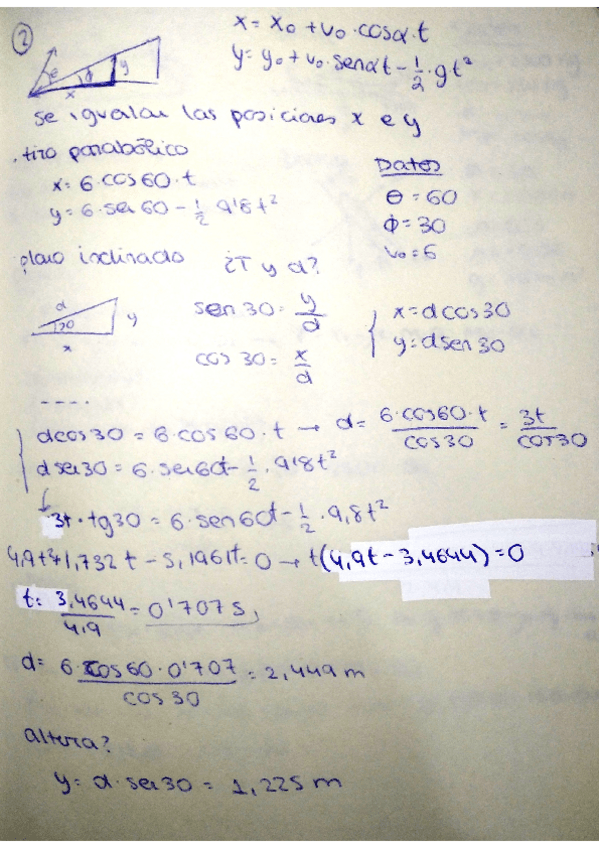 ②
x = x₀ + v₀ · cosα · t
y = y₀ + v₀ · senαt - 1/2 · gt²
θ ϕ y
x
se igualan las posiciones x e y
. tiro parabólico
x = 6 · cos 60 · t
y = 6 · sen 60 - 1/2 9'8t²
Datos
θ = 60
ϕ = 30
v₀ = 6
plano inclinado ¿T y d?
d y
30
x
sen 30 = y/d
cos 30 = x/d
{ x = d cos 30
y = d sen 30
----.
{ d cos 30 = 6 · cos 60 · t → d = 6 · cos 60 · t / cos 30 = 3t / cos 30
d sen 30 = 6 · sen 60t - 1/2 · 9'8t²
↓
3t · tg 30 = 6 · sen 60t - 1/2 · 9,8t²
4,9t² + 1,732 t - 5,196t = 0 → t(4,9t - 3,4644) = 0
t = 3,4644 / 4,9 = 0'707 s,
d = 6 · cos 60 · 0'707 / cos 30 = 2,449 m
altura?
y = d · sen 30 = 1,225 m